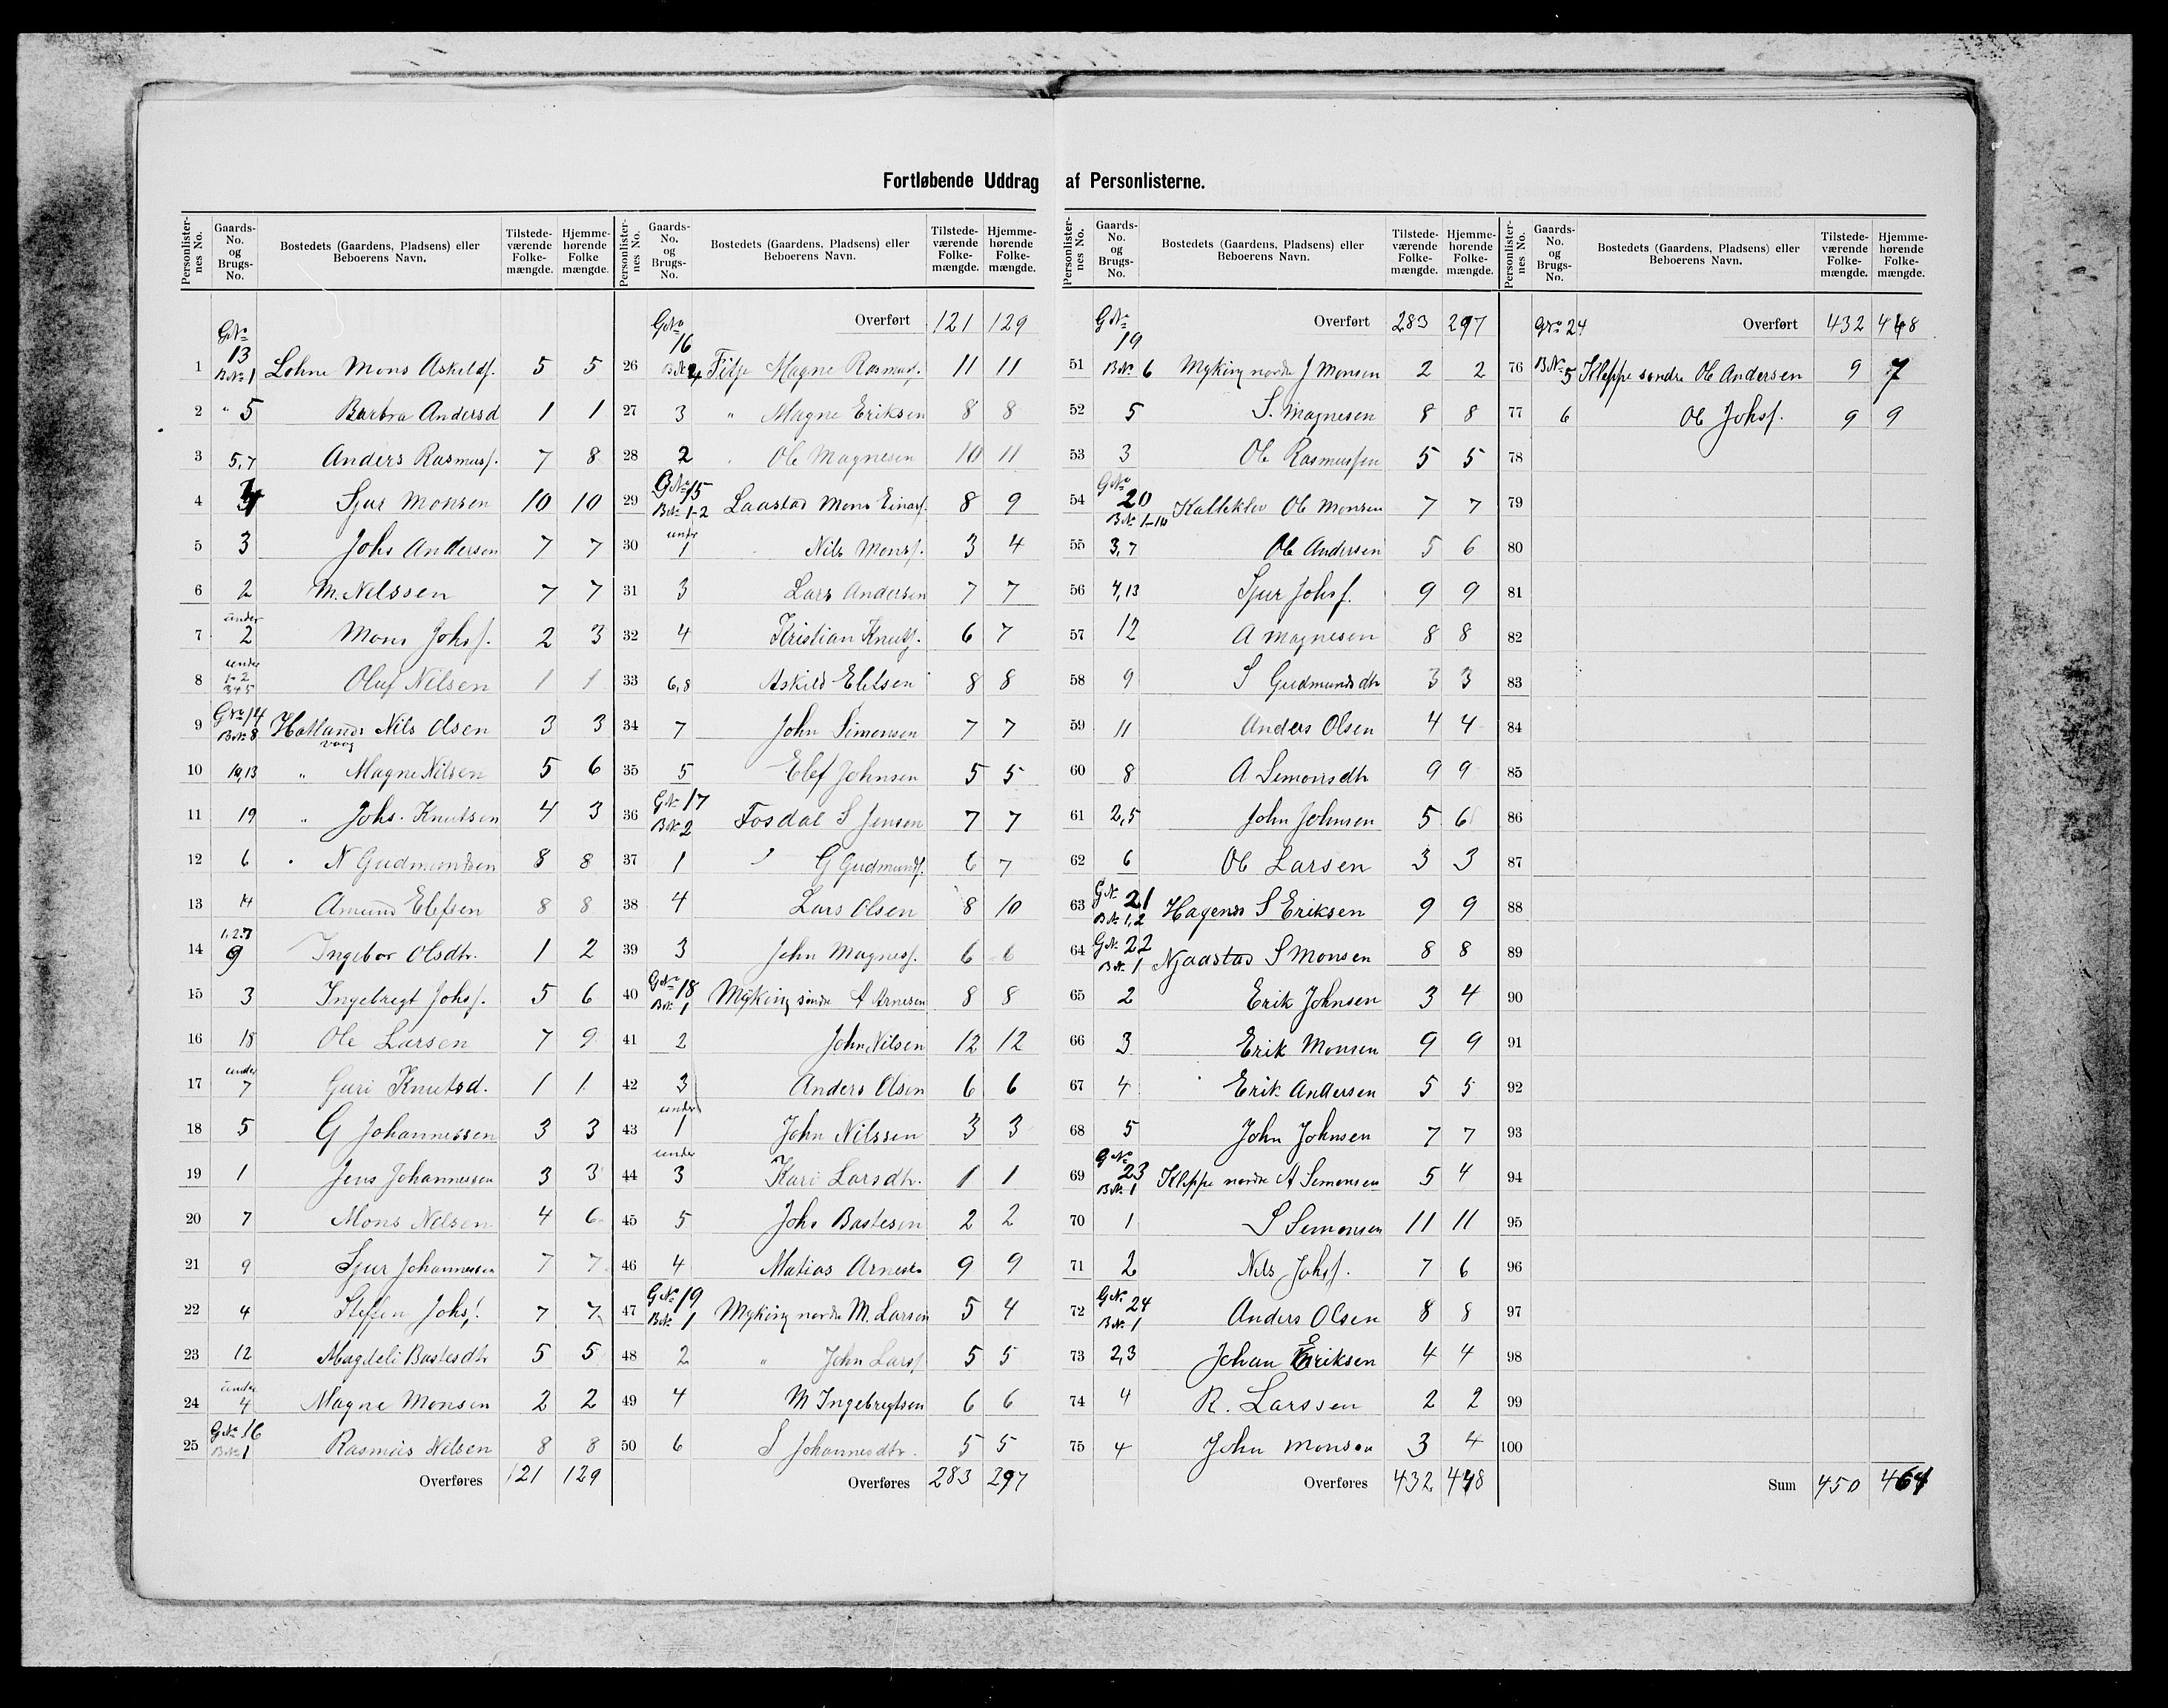 Fortløbende Uddrag af Personlisterne.
Personlisternes No. Gaards-No. og Brugs-No. Bostedets (Gaardens, Pladsens) eller Beboerens Navn. Tilstedeværende Folkemængde. Hjemmehørende Folkemængde.
GNo 13
1 BNo 1 Lohne Mons Askelds. 5 5
2 " 5 Barbra Andersd 1 1
3 5,7 Anders Rasmuss. 7 8
4 4 Sjur Monsen 10 10
5 3 Johs Andersen 7 7
6 2 M. Nelssen 7 7
7 under 2 Mons Johs s. 2 3
8 under 1-2 345 Oluf Nilsen 1 1
9 GNo 14 BNo 8 Hatlandsvaag Nils Olsen 3 3
10 10,13 " Magne Nilsen 5 6
11 19 " Johs. Knutsen 4 3
12 6 " N Gudmundsen 8 8
13 14 Amund Elefsen 8 8
14 1.2.7 9 Ingebor Olsdtr. 1 2
15 3 Ingebregt Johs s. 5 6
16 18 Ole Larsen 7 9
17 under 7 Guri Knutsd. 1 1
18 5 G Johannessen 3 3
19 1 Jens Johannessen 3 3
20 7 Mons Nelsen 4 6
21 9 Sjur Johannessen 7 7
22 4 Steffen Johs s. 7 7
23 12 Magdeli Bastesdtr 5 5
24 under 4 Magne Monsen 2 2
25 GNo 16 BNo 1 Rasmus Nilsen 8 8
Overføres 121 129
Personlisternes No. Gaards-No. og Brugs-No. Bostedets (Gaardens, Pladsens) eller Beboerens Navn. Tilstedeværende Folkemængde. Hjemmehørende Folkemængde.
GNo 16 Overført 121 129
26 BNo 4 Fitje Magne Rasmuss. 11 11
27 3 " Magne Eriksen 8 8
28 2 " Ole Magnesen 10 11
29 GNo 15 BNo 1-2 Laastad Mons Einars. 8 9
30 under 1 Nils Monss. 3 4
31 3 Lars Andersen 7 7
32 4 Kristian Knuts. 6 7
33 6,8 Askild Elelsen 8 8
34 7 John Simonsen 7 7
35 5 Elef Johnsen 5 5
36 GNo 17 BNo 2 Fosdal S Jensen 7 7
37 1 " G Gudmunds. 6 7
38 4 Lars Olsen 8 10
39 3 John Magness. 6 6
40 GNo 18 BNo 1 Myking søndre A Arnesen 8 8
41 2 John Nilsen 12 12
42 3 Anders Olsen 6 6
43 under 1 John Nilssen 3 3
44 under 3 Kari Larsdtr. 1 1
45 5 Johs Bastesen 2 2
46 4 Matias Arnesen 9 9
47 GNo 19 BNo 1 Myking nordre M. Larsen 5 4
48 2 " John Larss 5 5
49 4 M Ingebregtsen 6 6
50 6 S Johannesdtr. 5 5
Overføres 283 297
Personlisternes No. Gaards-No. og Brugs-No. Bostedets (Gaardens, Pladsens) eller Beboerens Navn. Tilstedeværende Folkemængde. Hjemmehørende Folkemængde.
GNo 19 Overført 283 297
51 BNo 6 Myking nordre J Monsen 2 2
52 5 S. Magnesen 8 8
53 3 Ole Rasmussen 5 5
54 GNo 20 BNo 1-10 Kalleklev Ole Monsen 7 7
55 3,7 Ole Andersen 5 6
56 4,13 Sjur Johs s. 9 9
57 12 A Magnesen 8 8
58 9 S Gudmundsdtr 3 3
59 11 Anders Olsen 4 4
60 8 A Simonsdtr 9 9
61 2,5 John Johnsen 5 6
62 6 Ole Larsen 3 3
63 GNo 21 BNo 1,2 Hagenes S Eriksen 9 9
64 GNo 22 BNo 1 Njaastad S Monsen 8 8
65 2 Erik Johnsen 3 4
66 3 Erik Monsen 9 9
67 4 Erik Andersen 5 5
68 5 John Johnsen 7 7
69 GNo 23 BNo 1 Kleppe nordre A Simonsen 5 4
70 1 S Simonsen 11 11
71 2 Nils Johs s. 7 6
72 GNo 24 BNo 1 Anders Olsen 8 8
73 2,3 Johan Eriksen 4 4
74 4 R. Larssen 2 2
75 4 John Monsen 3 4
Overføres 432 448
Personlisternes No. Gaards-No. og Brugs-No. Bostedets (Gaardens, Pladsens) eller Beboerens Navn. Tilstedeværende Folkemængde. Hjemmehørende Folkemængde.
GNo 24 Overført 432 448
76 BNo 5 Kleppe søndre Ole Andersen 9 7
77 6 Ole Johs s. 9 9
78
79
80
81
82
83
84
85
86
87
88
89
90
91
92
93
94
95
96
97
98
99
100
Sum 450 464